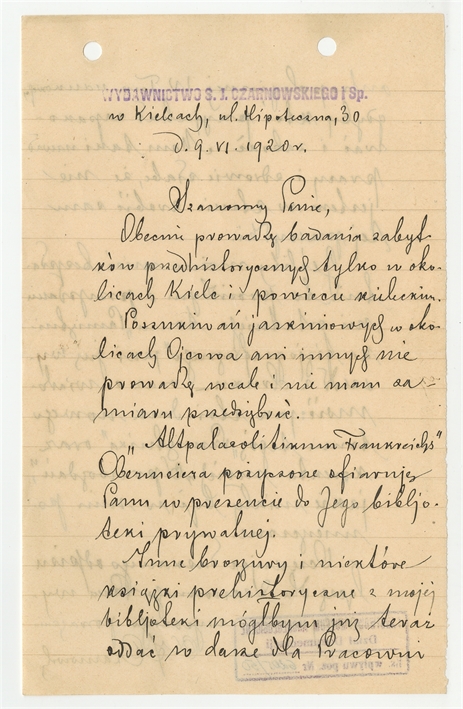 WYDAWNICTWO S. J. CZARNOWSKIEGO i Sp.
w Kielcach, ul. Hipoteczna, 30
d. 9. VI. 1920 r.
Szanowny Panie,
Obecnie prowadzę badania zabyt-
ków przedhistorycznych tylko w oko-
licach Kielc i powiecie kieleckim.
Poszukiwań jaskiniowych w oko-
licach Ojcowa ani innych nie
prowadzę wcale i nie mam za-
miaru przedsiębrać.
"Altpaläolitikum Frankreichs"
Obermeiera pożyczone ofiaruję
Panu w prezencie do Jego biblijo-
teki prywatnej.
Inne broszury i niektóre
książki prehistoryczne z mojej
biblijoteki mógłbym już teraz
oddać w darze dla Pracowni